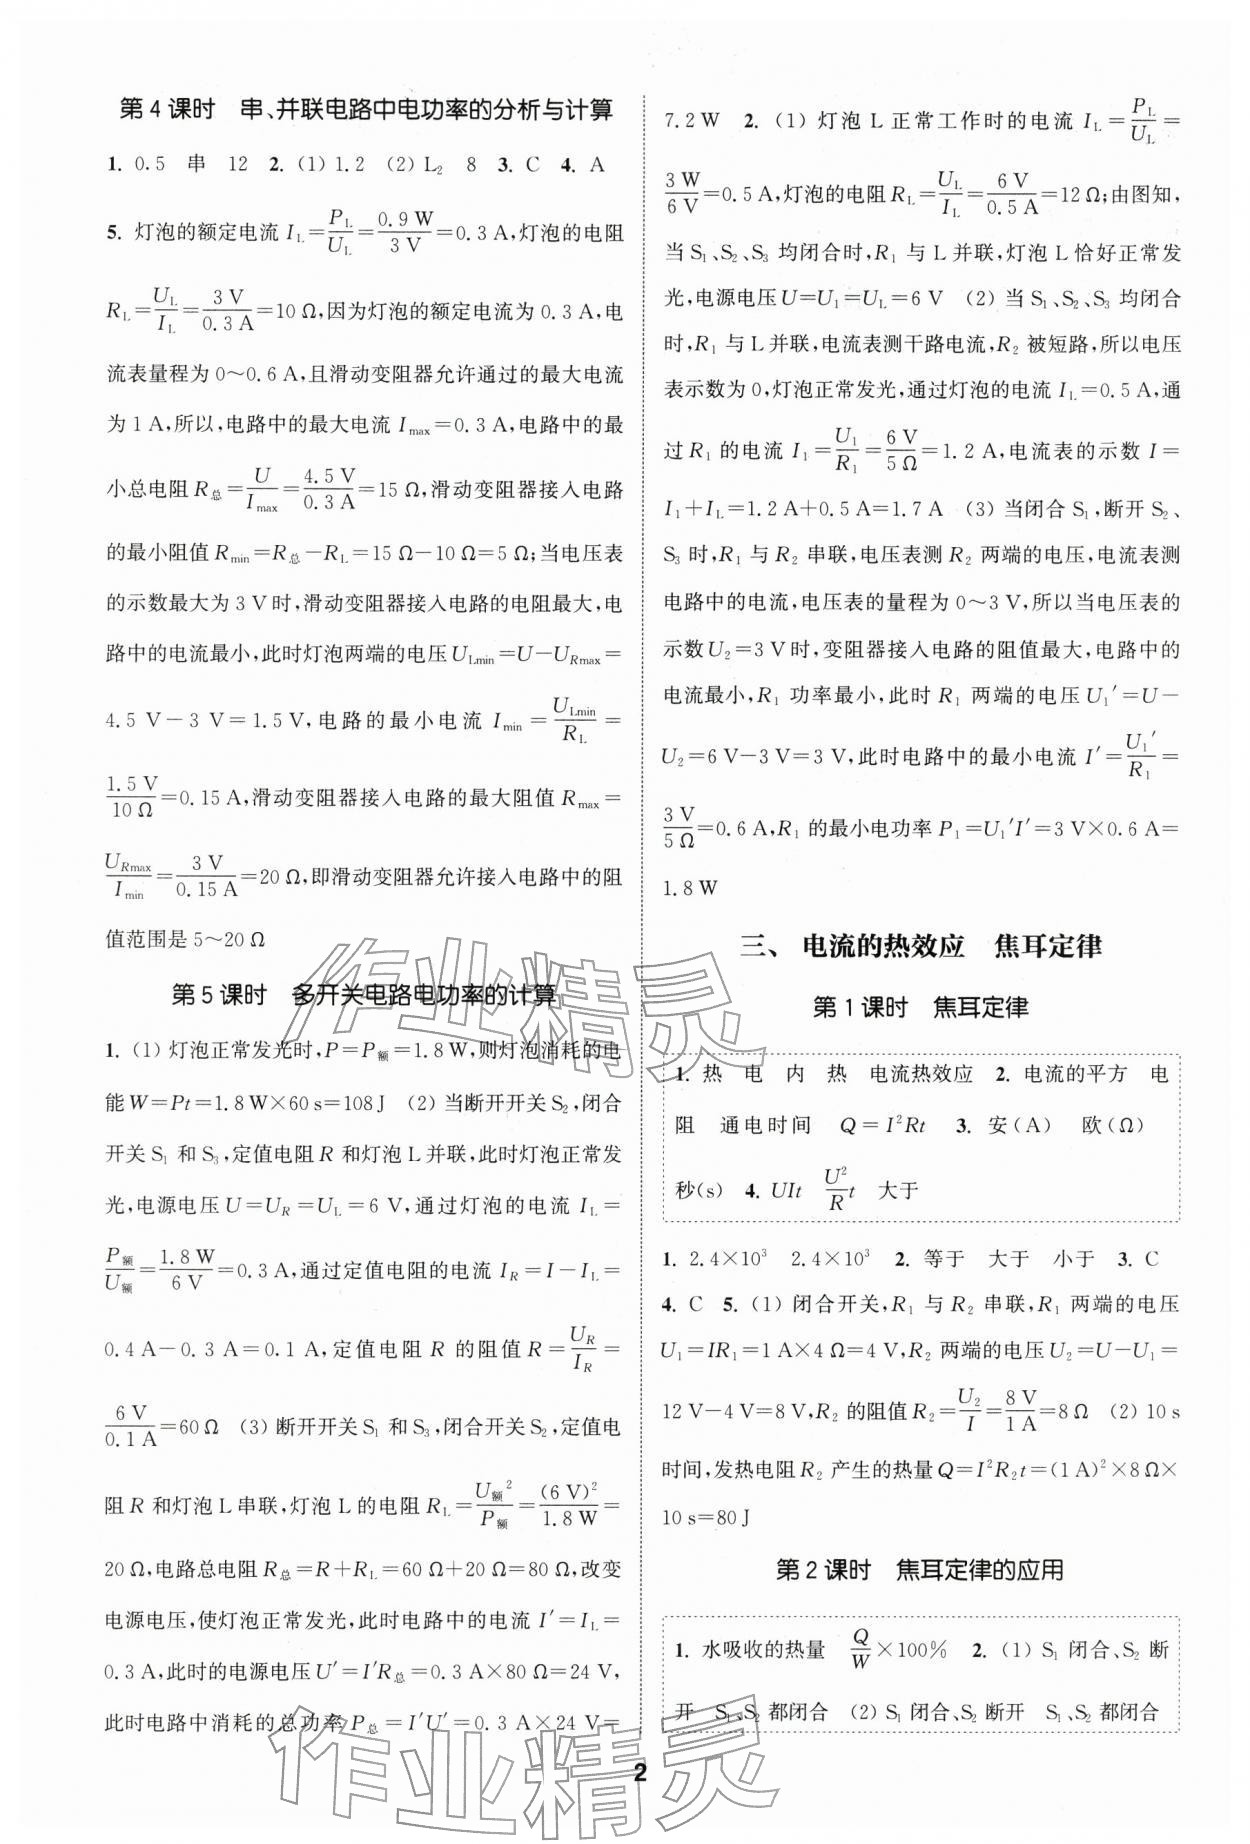 第 4 课时　串、并联电路中电功率的分析与计算
1. 0.5　串　12　2. (1) 1.2　(2) L₂　8　3. C　4. A
5. 灯泡的额定电流 I_L=P_L/U_L=0.9 W/3 V=0.3 A,灯泡的电阻
R_L=U_L/I_L=3 V/0.3 A=10 Ω,因为灯泡的额定电流为 0.3 A,电
流表量程为 0～0.6 A,且滑动变阻器允许通过的最大电流
为 1 A,所以,电路中的最大电流 I_max=0.3 A,电路中的最
小总电阻 R_总=U/I_max=4.5 V/0.3 A=15 Ω,滑动变阻器接入电路
的最小阻值 R_min=R_总-R_L=15 Ω-10 Ω=5 Ω;当电压表
的示数最大为 3 V 时,滑动变阻器接入电路的电阻最大,电
路中的电流最小,此时灯泡两端的电压 U_Lmin=U-U_Rmax=
4.5 V-3 V=1.5 V,电路的最小电流 I_min=U_Lmin/R_L=
1.5 V/10 Ω=0.15 A,滑动变阻器接入电路的最大阻值 R_max=
U_Rmax/I_min=3 V/0.15 A=20 Ω,即滑动变阻器允许接入电路中的阻
值范围是 5～20 Ω
第 5 课时　多开关电路电功率的计算
1. (1) 灯泡正常发光时,P=P_额=1.8 W,则灯泡消耗的电
能 W=Pt=1.8 W×60 s=108 J　(2) 当断开开关 S₂,闭合
开关 S₁ 和 S₃,定值电阻 R 和灯泡 L 并联,此时灯泡正常发
光,电源电压 U=U_R=U_L=6 V,通过灯泡的电流 I_L=
P_额/U_额=1.8 W/6 V=0.3 A,通过定值电阻的电流 I_R=I-I_L=
0.4 A-0.3 A=0.1 A,定值电阻 R 的阻值 R=U_R/I_R=
6 V/0.1 A=60 Ω　(3) 断开开关 S₁ 和 S₃,闭合开关 S₂,定值电
阻 R 和灯泡 L 串联,灯泡 L 的电阻 R_L=U_额²/P_额=(6 V)²/1.8 W=
20 Ω,电路总电阻 R_总=R+R_L=60 Ω+20 Ω=80 Ω,改变
电源电压,使灯泡正常发光,此时电路中的电流 I′=I_L=
0.3 A,此时的电源电压 U′=I′R_总=0.3 A×80 Ω=24 V,
此时电路中消耗的总功率 P_总=I′U′=0.3 A×24 V=
7.2 W　2. (1) 灯泡 L 正常工作时的电流 I_L=P_L/U_L=
3 W/6 V=0.5 A,灯泡的电阻 R_L=U_L/I_L=6 V/0.5 A=12 Ω;由图知,
当 S₁、S₂、S₃ 均闭合时,R₁ 与 L 并联,灯泡 L 恰好正常发
光,电源电压 U=U₁=U_L=6 V　(2) 当 S₁、S₂、S₃ 均闭合
时,R₁ 与 L 并联,电流表测干路电流,R₂ 被短路,所以电压
表示数为 0,灯泡正常发光,通过灯泡的电流 I_L=0.5 A,通
过 R₁ 的电流 I₁=U₁/R₁=6 V/5 Ω=1.2 A,电流表的示数 I=
I₁+I_L=1.2 A+0.5 A=1.7 A　(3) 当闭合 S₁,断开 S₂、
S₃ 时,R₁ 与 R₂ 串联,电压表测 R₂ 两端的电压,电流表测
电路中的电流,电压表的量程为 0～3 V,所以当电压表的
示数 U₂=3 V 时,变阻器接入电路的阻值最大,电路中的
电流最小,R₁ 功率最小,此时 R₁ 两端的电压 U₁′=U-
U₂=6 V-3 V=3 V,此时电路中的最小电流 I′=U₁′/R₁=
3 V/5 Ω=0.6 A,R₁ 的最小电功率 P₁=U₁′I′=3 V×0.6 A=
1.8 W
三、 电流的热效应　焦耳定律
第 1 课时　焦耳定律
1. 热　电　内　热　电流热效应　2. 电流的平方　电
阻　通电时间　Q=I²Rt　3. 安(A)　欧(Ω)
秒(s)　4. UIt　U²/R t　大于
1. 2.4×10³　2.4×10³　2. 等于　大于　小于　3. C
4. C　5. (1) 闭合开关,R₁ 与 R₂ 串联,R₁ 两端的电压
U₁=IR₁=1 A×4 Ω=4 V,R₂ 两端的电压 U₂=U-U₁=
12 V-4 V=8 V,R₂ 的阻值 R₂=U₂/I=8 V/1 A=8 Ω　(2) 10 s
时间,发热电阻 R₂ 产生的热量 Q=I²R₂t=(1 A)²×8 Ω×
10 s=80 J
第 2 课时　焦耳定律的应用
1. 水吸收的热量　Q/W×100%　2. (1) S₁ 闭合、S₂ 断
开　S₁、S₂ 都闭合　(2) S₁ 闭合、S₂ 断开　S₁、S₂ 都闭合
2
作业精灵
作业精灵